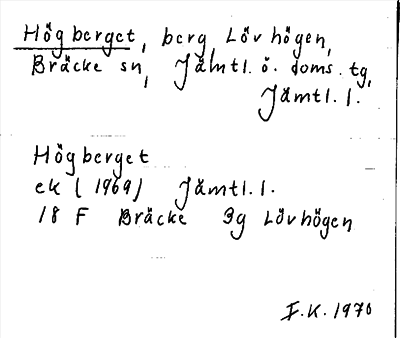 Högberget, berg, Lövhögen,
Bräcke sn, Jämtl. ö. doms. tg,
Jämtl. l.
Högberget
ek (1969) Jämtl. l.
18 F Bräcke 3g Lövhögen
I.K. 1970